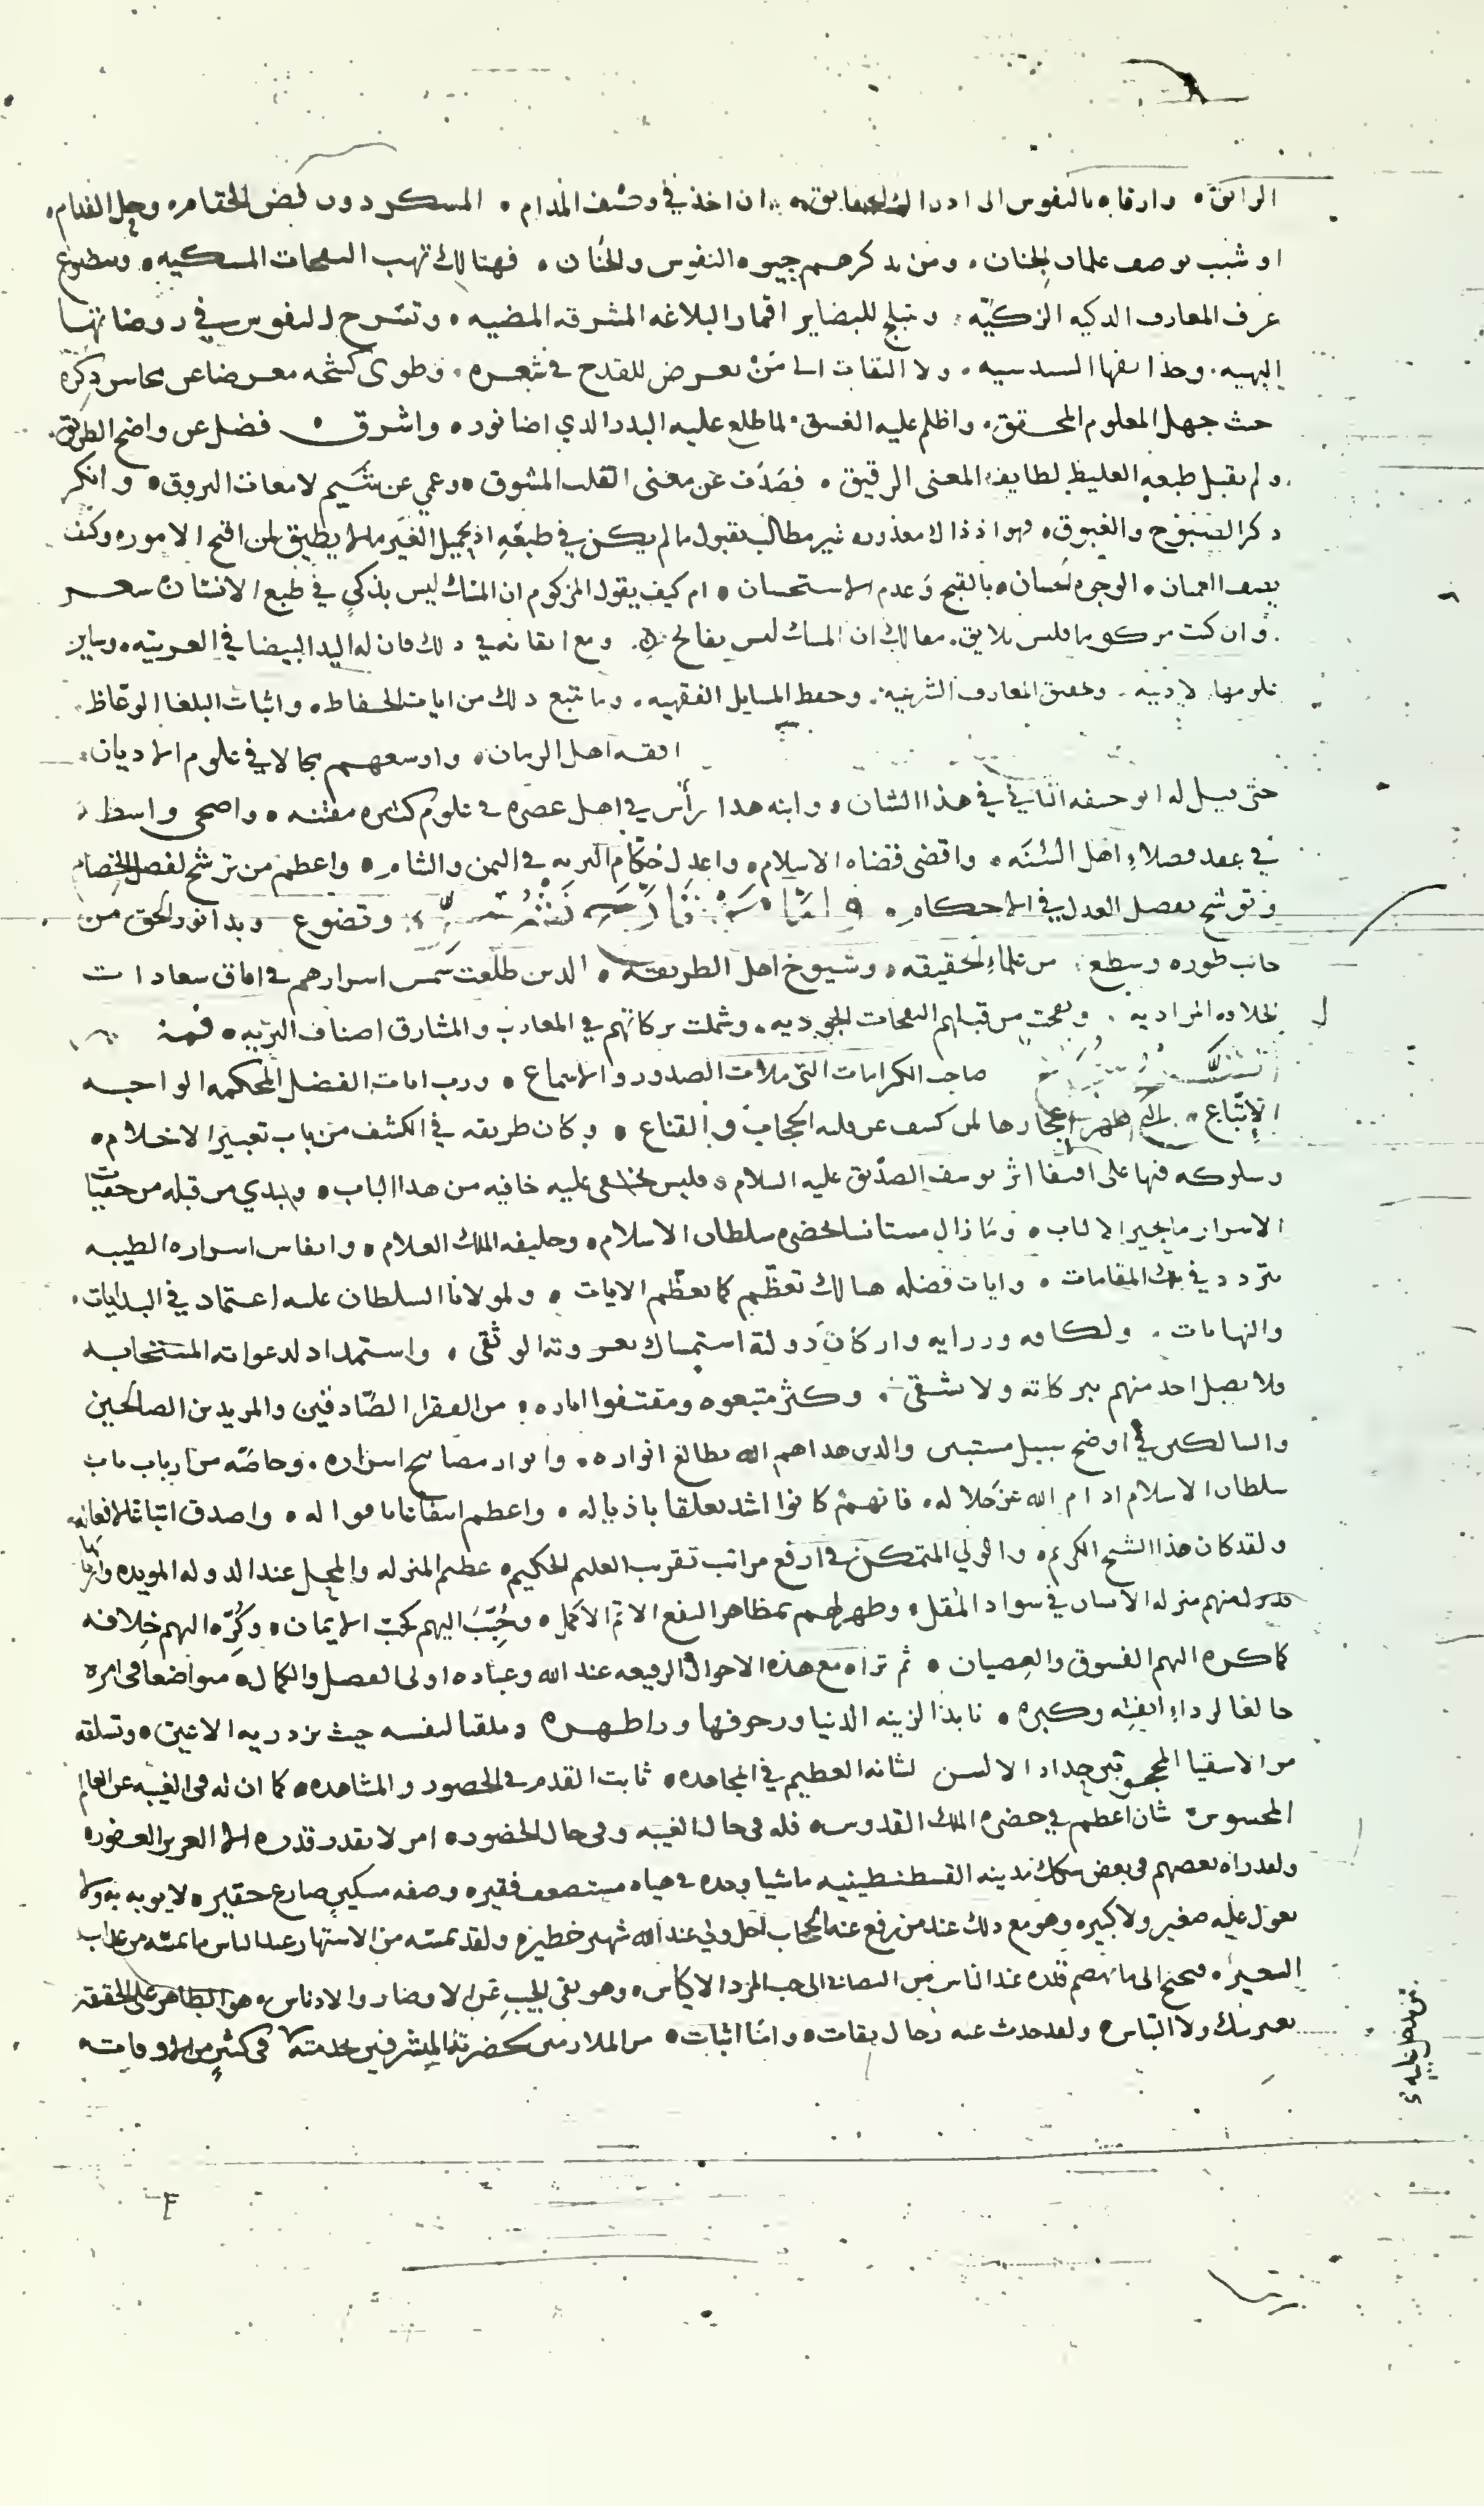 الرائقة وارقاه بالنفوس الى ادراك الحقايق ان اخذ في وصف المدام المسكر دون فض الختام وحل الفدام
او شبب بوصف غلمان الجنان ومن بذكرهم حيوه النفوس والجنان فهنالك تهب النفحات المسكيه ويتضوع
عرف المعارف الذكيه الزكيّه وتبلج للبصاير اقمار البلاغه المشرقه المضيه وتسرح النفوس في روضاتها
البهيه وحدايقها السندسيه ولا التفات الى مَنْ تعرض للقدح في شعره وطوى كشحه معرضا عن محاسن ذكره
حيث جهل المعلوم المحقق واظلم عليه الغسق لما طلع عليه البدر الذي اضا نوره واشرق فضل عن واضح الطريق
ولم يقبل طبعه الغليظ لطايف المعنى الرقيق فصدَف عن معنى القلب المشوق وعمي عن شَيم لامعات البروق وانكر
ذكر الصبوح والغبوق فهو اذ ذاك معذور غير مطالب بقبول ما لم يكن في طبعه اذ تحميل الغير ما لا يطيق لمن اقبح الامور وكيف
يصف العميان الوجوه الحسان بالقبح وعدم الاستحسان ام كيف يقول المزكوم ان المسك ليس بذكي في طبع الانسان شعر
وان كنت مزكوما فليس بلايق مقالك ان المسك ليس بفائح ومع اتقانه في ذلك فان له اليد البيضا في العربيه وساير
علومها الادبيه وتحقيق المعارف الشرعيه وحفظ المسايل الفقهيه وما تتبع ذلك من ايات الحفاظ واثبات البلغا الوعّاظ
افقه اهل الزمان واوسعهم مجالا في علوم الاديان
حتى قيل له ابو حنيفه الثاني في هذا الشان وابنه هذا رأس في اهل عصره في علوم كثيره مفتنه واضحى واسطه
في عقد فضلاءِ اهل السُنَه واقضى قضاه الاسلام واعدل حكّام البريه في اليمن والشام واعظم من ترشح لفصل الخصام
وتوشح بفصل العدل في الاحكام وامّا من فاح نشره وتضوع وبدا نور الحق من
جانب طوره وسطع من علماءِ الحقيقه وشيوخ اهل الطريقه الذين طلعت شمس اسرارهم في افاق سعادات
الخلافه المراديه ونفحت من قبلهم النفحات الجوديه وشملت بركاتهم في المغارب والمشارق اصناف البريّه فمنهم
صاحب الكرامات التي ملات الصدور والاسماع ورب ايات الفضل المحكمه الواجبه
الاتّباع التي ظهر اعجازها لمن كشف عن قلبه الحجاب والقناع وكان طريقه في الكشف من باب تعبير الاحلام
وسلوكه فيها على اقتفا اثر يوسف الصدّيق عليه السلام فليس تخفى عليه خافيه من هذا الباب ويبدي من قبله من خفيّات
الاسرار ما يحير الالباب وما زال مستانسا لحضره سلطان الاسلام وخليفه الملك العلام وانفاس اسراره الطيبه
تتردد في تلك المقامات وايات فضله هنالك تعظّم كما تعظّم الايات ولمولانا السلطان عليه اعتماد في البدايات
والنهايات ولكافه وزرايه واركان دولته استمساك بعروته الوثقى واستمداد لدعواته المستجابه
فلا يضل احد منهم ببركاته ولا يشقى وكثر متبعوه ومقتفوا اثاره من الفقرا الصّادقين والمريدين الصالحين
والسالكين في اوضح سبيل مستبين والذين هداهم الله بطالع انواره وانوار مصابيح اسراره وخاصّه من ارباب باب
سلطان الاسلام ادام الله عز جلاله فانهم كانوا اشد تعلقا باذياله واعظم استقامه بافعاله واصدق اتباعا لافعاله
ولقد كان هذا الشيخ الكريم والولي المتمكن في ارفع مراتب تقريب العليم الحكيم عظيم المنزله والمحل عند الدوله المويده واربابها
منهم منزله الانسان في سواد المقل وظهر لهم بمظاهر النفع الاتم الاكمل وحُبّبَ اليهم كحب الايمان وكُرِّه اليهم خلافه
كما كره اليهم الفسوق والعصيان ثم تراه مع هذه الاحوال الرفيعه عند الله وعباده اولى الفضل والكمال متواضعا في امره
خالعا لرداءِ انفته وكبره نابذا لزينه الدنيا وزخرفها ورا ظهره وملقيا لنفسه حيث تزدريه الاعين وتسلقه
من الاشقيا المحجوبين حداد الالسن لشانه العظيم في المجاهده ثابت القدم في الحضور والمشاهده كما ان له في الغيبه عن العالم
المحسوس شان اعظم في حضره الملك القدوس فله في حال الغيبه وفي حال الحضور امر لا يقدر قدره الا العزيز الغفور
ولقد راه بعضهم في بعض سكك مدينه القسطنطينيه ماشيا وحده في حياه مستضعف فقير وصفه مسكين ضارع حقير لا يوبه به ولا
يعول عليه صغير ولا كبير وهو مع ذلك عند من رفع عنه الحجاب اجل ولي عند الله شهير خطير ولقد تمسّه من الاشتهار عند الناس ما تمسّه من عذاب
السعير فيجنح الى ما يهضم قدره عند الناس من الى حب المرد الاكياس وهو نقي الجيب عن الاوضار والادناس هو الطاهر على الحقيقه
بغير شك ولا التباس ولقد حدث عنه رجال ثقات وامنا اثبات من الملازمين لحضرته المشرفين بخدمته في كثير من اوقاته